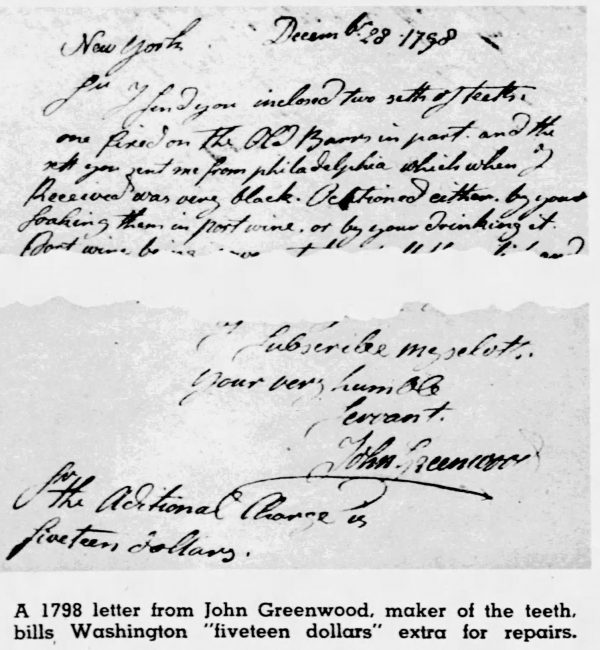 New York Decemb^r. 28 1798
Sir I send you inclosed two setts of teeth,
one fixed on the Old Barrs in part. and the
sett you sent me from philadelphia which when I
Received was very black. Ocationed either. by your
soaking them in port wine, or by your drinking it.
Port wine being
Subscribe myself.
your very humble
servant.
John Greenwood
Sir
the Aditional Charge is
fiveteen dollars.
A 1798 letter from John Greenwood, maker of the teeth,
bills Washington "fiveteen dollars" extra for repairs.